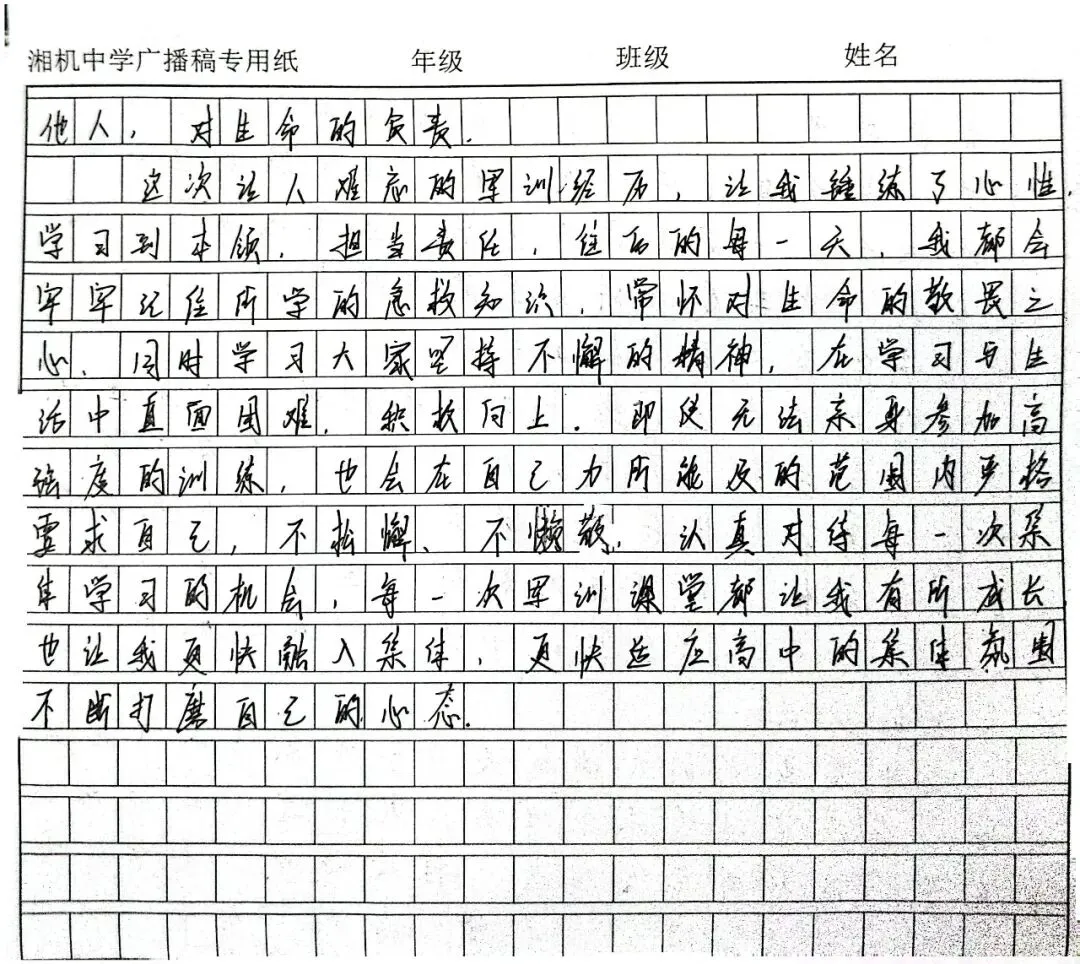 湘机中学广播稿专用纸 年级 班级 姓名
他人，对生命的负责.
这次让人难忘的军训经历，让我锤练了心性，
学习到本领，担当责任，往后的每一天，我都会
牢牢记住所学的急救知识，常怀对生命的敬畏之
心、同时学习大家坚持不懈的精神，在学习与生
活中直面困难，积极向上.即使无法亲身参加高
强度的训练，也会在自己力所能及的范围内严格
要求自己，不松懈、不懒散，认真对待每一次集
体学习的机会，每一次军训课堂都让我有所成长
也让我更快融入集体，更快适应高中的集体氛围
不断打磨自己的心态.